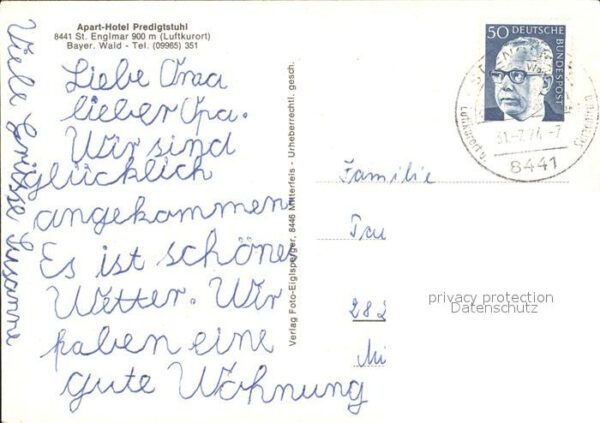 Apart-Hotel Predigtstuhl
8441 St. Englmar 900 m (Luftkurort)
Bayer. Wald - Tel. (09965) 351
Liebe Oma
lieber Opa.
Wir sind
glücklich
angekommen
Es ist schöne
Wetter. Wir
haben eine
gute Wohnung
Viele Grüsse Susanne
Verlag Foto-Eiglsperger, 8446 Mitterfels - Urheberrechtl. gesch.
50 DEUTSCHE
BUNDESPOST
31.-7.74.-7
8441
Familie
Tra
282
Mi
privacy protection
Datenschutz